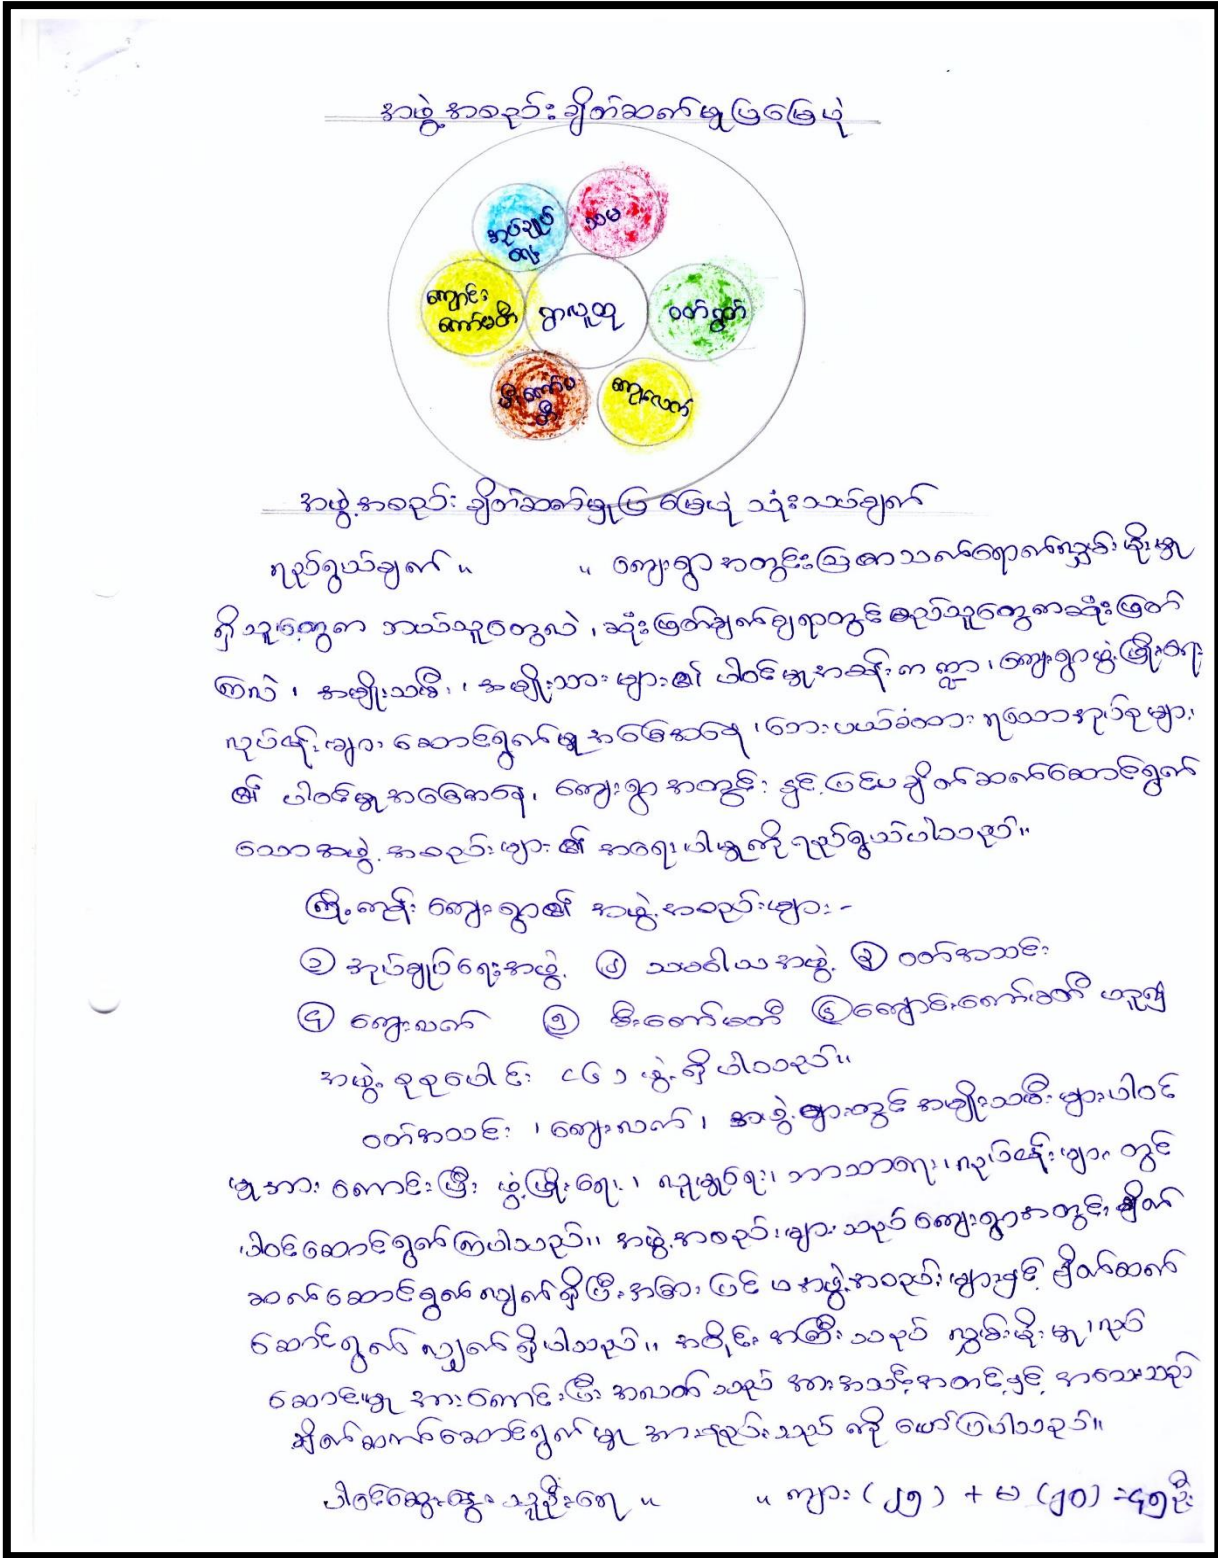 အဖွဲ့အစည်းချိတ်ဆက်မှုပြမြေပုံ
အုပ်ချုပ်
ရေး
သမ
ကျောင်း
ကော်မတီ
ရွာလူထု
ဝတ်ရွတ်
မီးကော်မ
တီ
ကျေးလက်
အဖွဲ့အစည်းချိတ်ဆက်မှုပြမြေပုံ သုံးသပ်ချက်
ရည်ရွယ်ချက် ။ ။ ကျေးရွာအတွင်းသြဇာသက်ရောက်လွှမ်းမိုးမှု
ရှိသူတွေက ဘယ်သူတွေလဲ ၊ ဆုံးဖြတ်ချက်ချရာတွင် မည်သူတွေကဆုံးဖြတ်
ကြလဲ ၊ အမျိုးသမီး ၊ အမျိုးသားများ၏ ပါဝင်မှုအခန်းကဏ္ဍ ၊ ကျေးရွာဖွံ့ဖြိုးရေး
လုပ်ငန်းများ ဆောင်ရွက်မှုအခြေအနေ ၊ ဘေးပယ်ခံထားရသောအုပ်စုများ
၏ ပါဝင်မှုအခြေအနေ ၊ ကျေးရွာအတွင်း နှင့် ပြင်ပ ချိတ်ဆက်ဆောင်ရွက်
သောအဖွဲ့အစည်းများ၏ အရေးပါမှုကို ရည်ရွယ်ပါသည်။
ကြို့ကုန်း ကျေးရွာ၏ အဖွဲ့အစည်းများ -
၁ အုပ်ချုပ်ရေးအဖွဲ့ ၂ သမဝါယအဖွဲ့ ၃ ဝတ်အသင်း
၄ ကျေးလက် ၅ မီးကော်မတီ ၆ ကျောင်းကော်မတီ ဟူ၍
အဖွဲ့ စုစုပေါင်း (၆) ဖွဲ့ရှိပါသည်။
ဝတ်အသင်း ၊ ကျေးလက် ၊ အဖွဲ့များတွင် အမျိုးသမီးများပါဝင်
မှုအားကောင်းပြီး ဖွံ့ဖြိုးရေး ၊ လူမှုရေး ၊ ဘာသာရေး ၊ လုပ်ငန်းများတွင်
ပါဝင်ဆောင်ရွက်ကြပါသည်။ အဖွဲ့အစည်းများသည် ကျေးရွာအတွင်း ချိတ်
ဆက်ဆောင်ရွက်လျှက်ရှိပြီး အခြားပြင်ပအဖွဲ့အစည်းများနှင့် ချိတ်ဆက်
ဆောင်ရွက်လျှက်ရှိပါသည်။ အဝိုင်းအကြီးသည် လွှမ်းမိုးမှု ၊ လုပ်
ဆောင်မှု အားကောင်းပြီး အလတ်သည် အားအသင့်အတင့်နှင့် အသေးသည်
ချိတ်ဆက်ဆောင်ရွက်မှု အားနည်းသည် ကို ဖော်ပြပါသည်။
ပါဝင်ဆွေးနွေးသူဦးရေ ။ ။ ကျား (၂၅) + မ (၂၀) = ၄၅ဦး